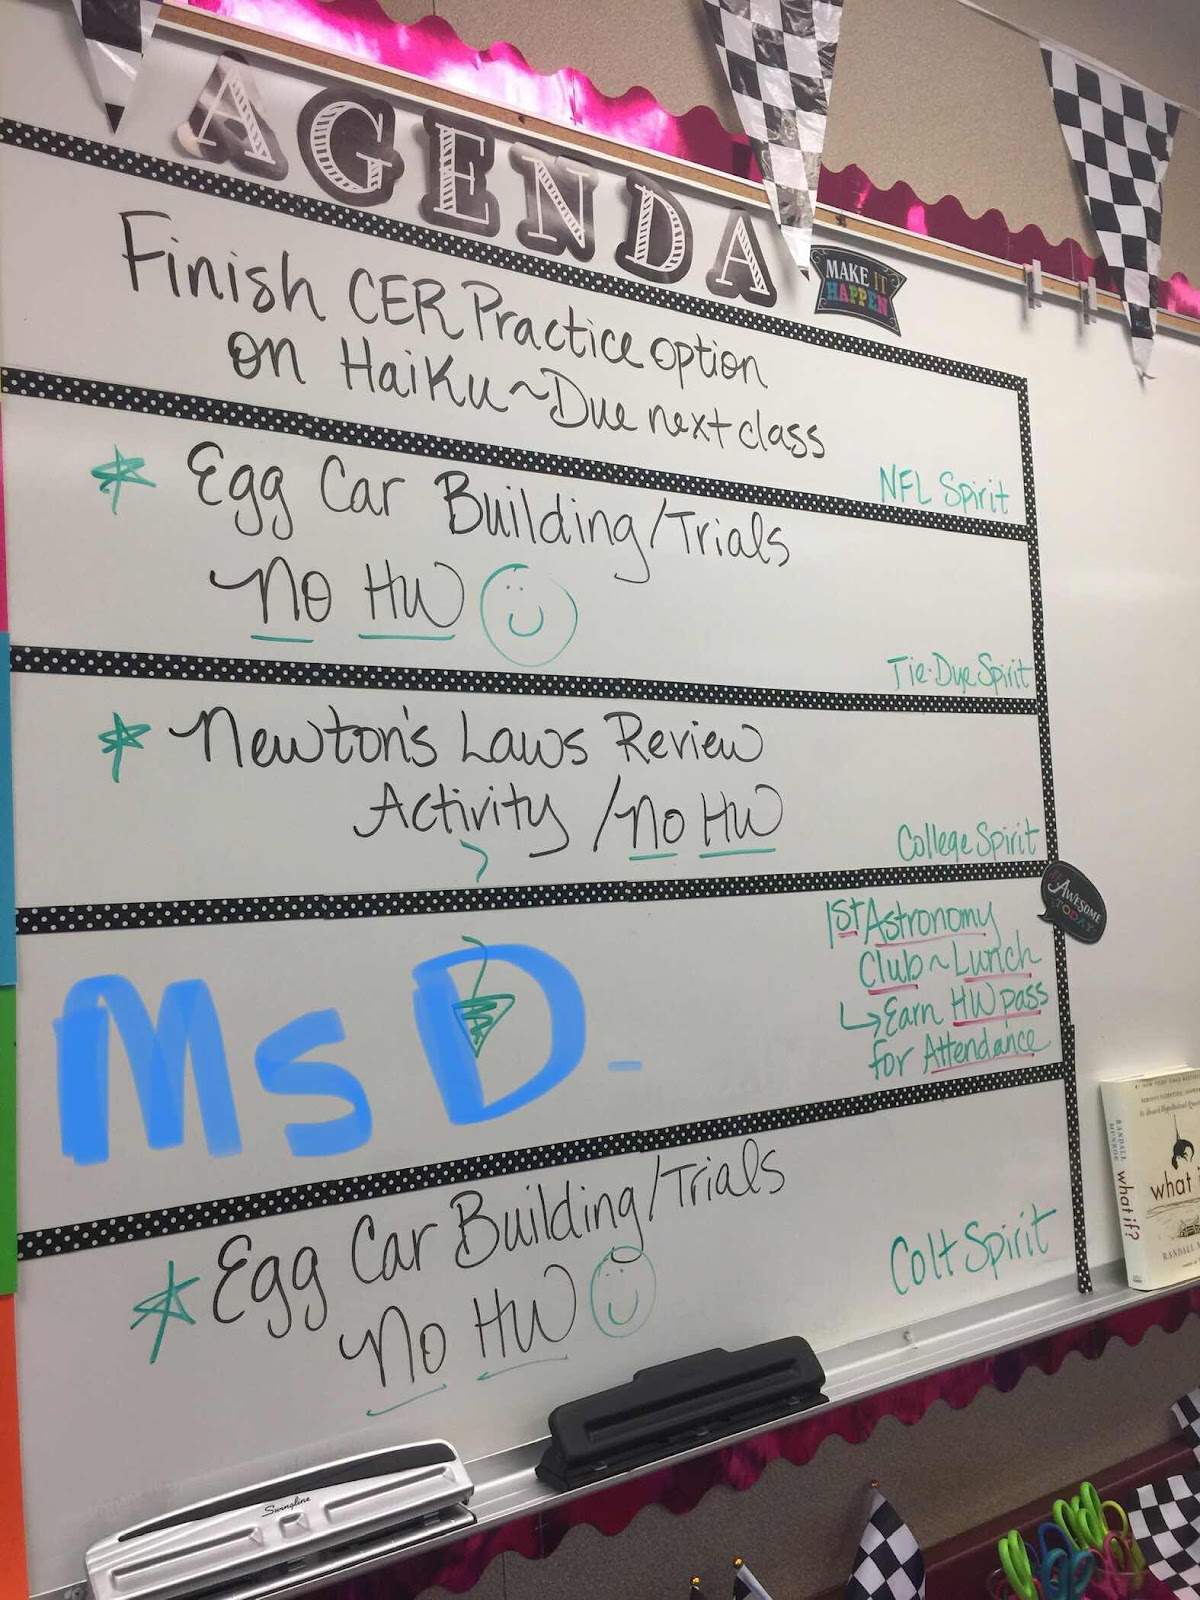 AGENDA
MAKE IT
HAPPEN
Finish CER Practice option
on Haiku~Due next class
NFL Spirit
Egg Car Building/Trials
No HW
Tie-Dye Spirit
Newton's Laws Review
Activity /No HW
College Spirit
BE
AWESOME
TODAY
Ms D.
1st Astronomy
Club~Lunch
↳Earn HW pass
for Attendance
Egg Car Building/Trials
No HW
Colt Spirit
Swingline
RANDALL
MUNROE
what if?
what
RANDALL